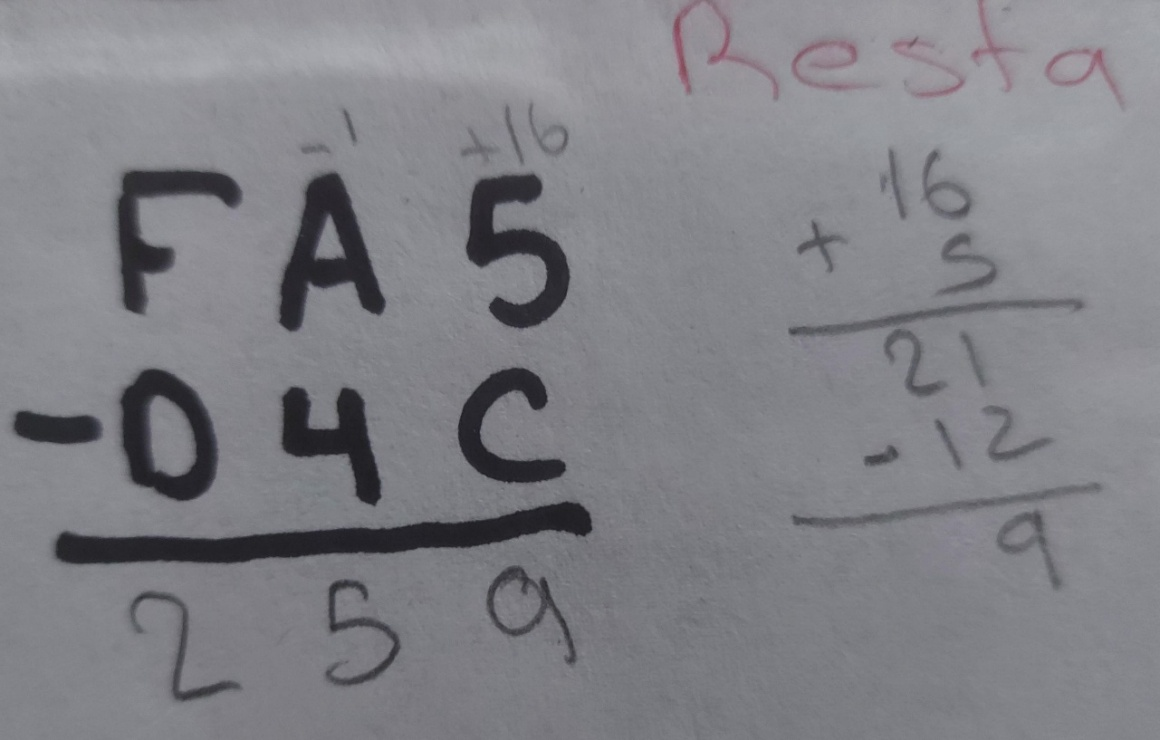 Resta
-1 +16
F A 5
- D 4 C
2 5 9
16
+ 5
21
- 12
9